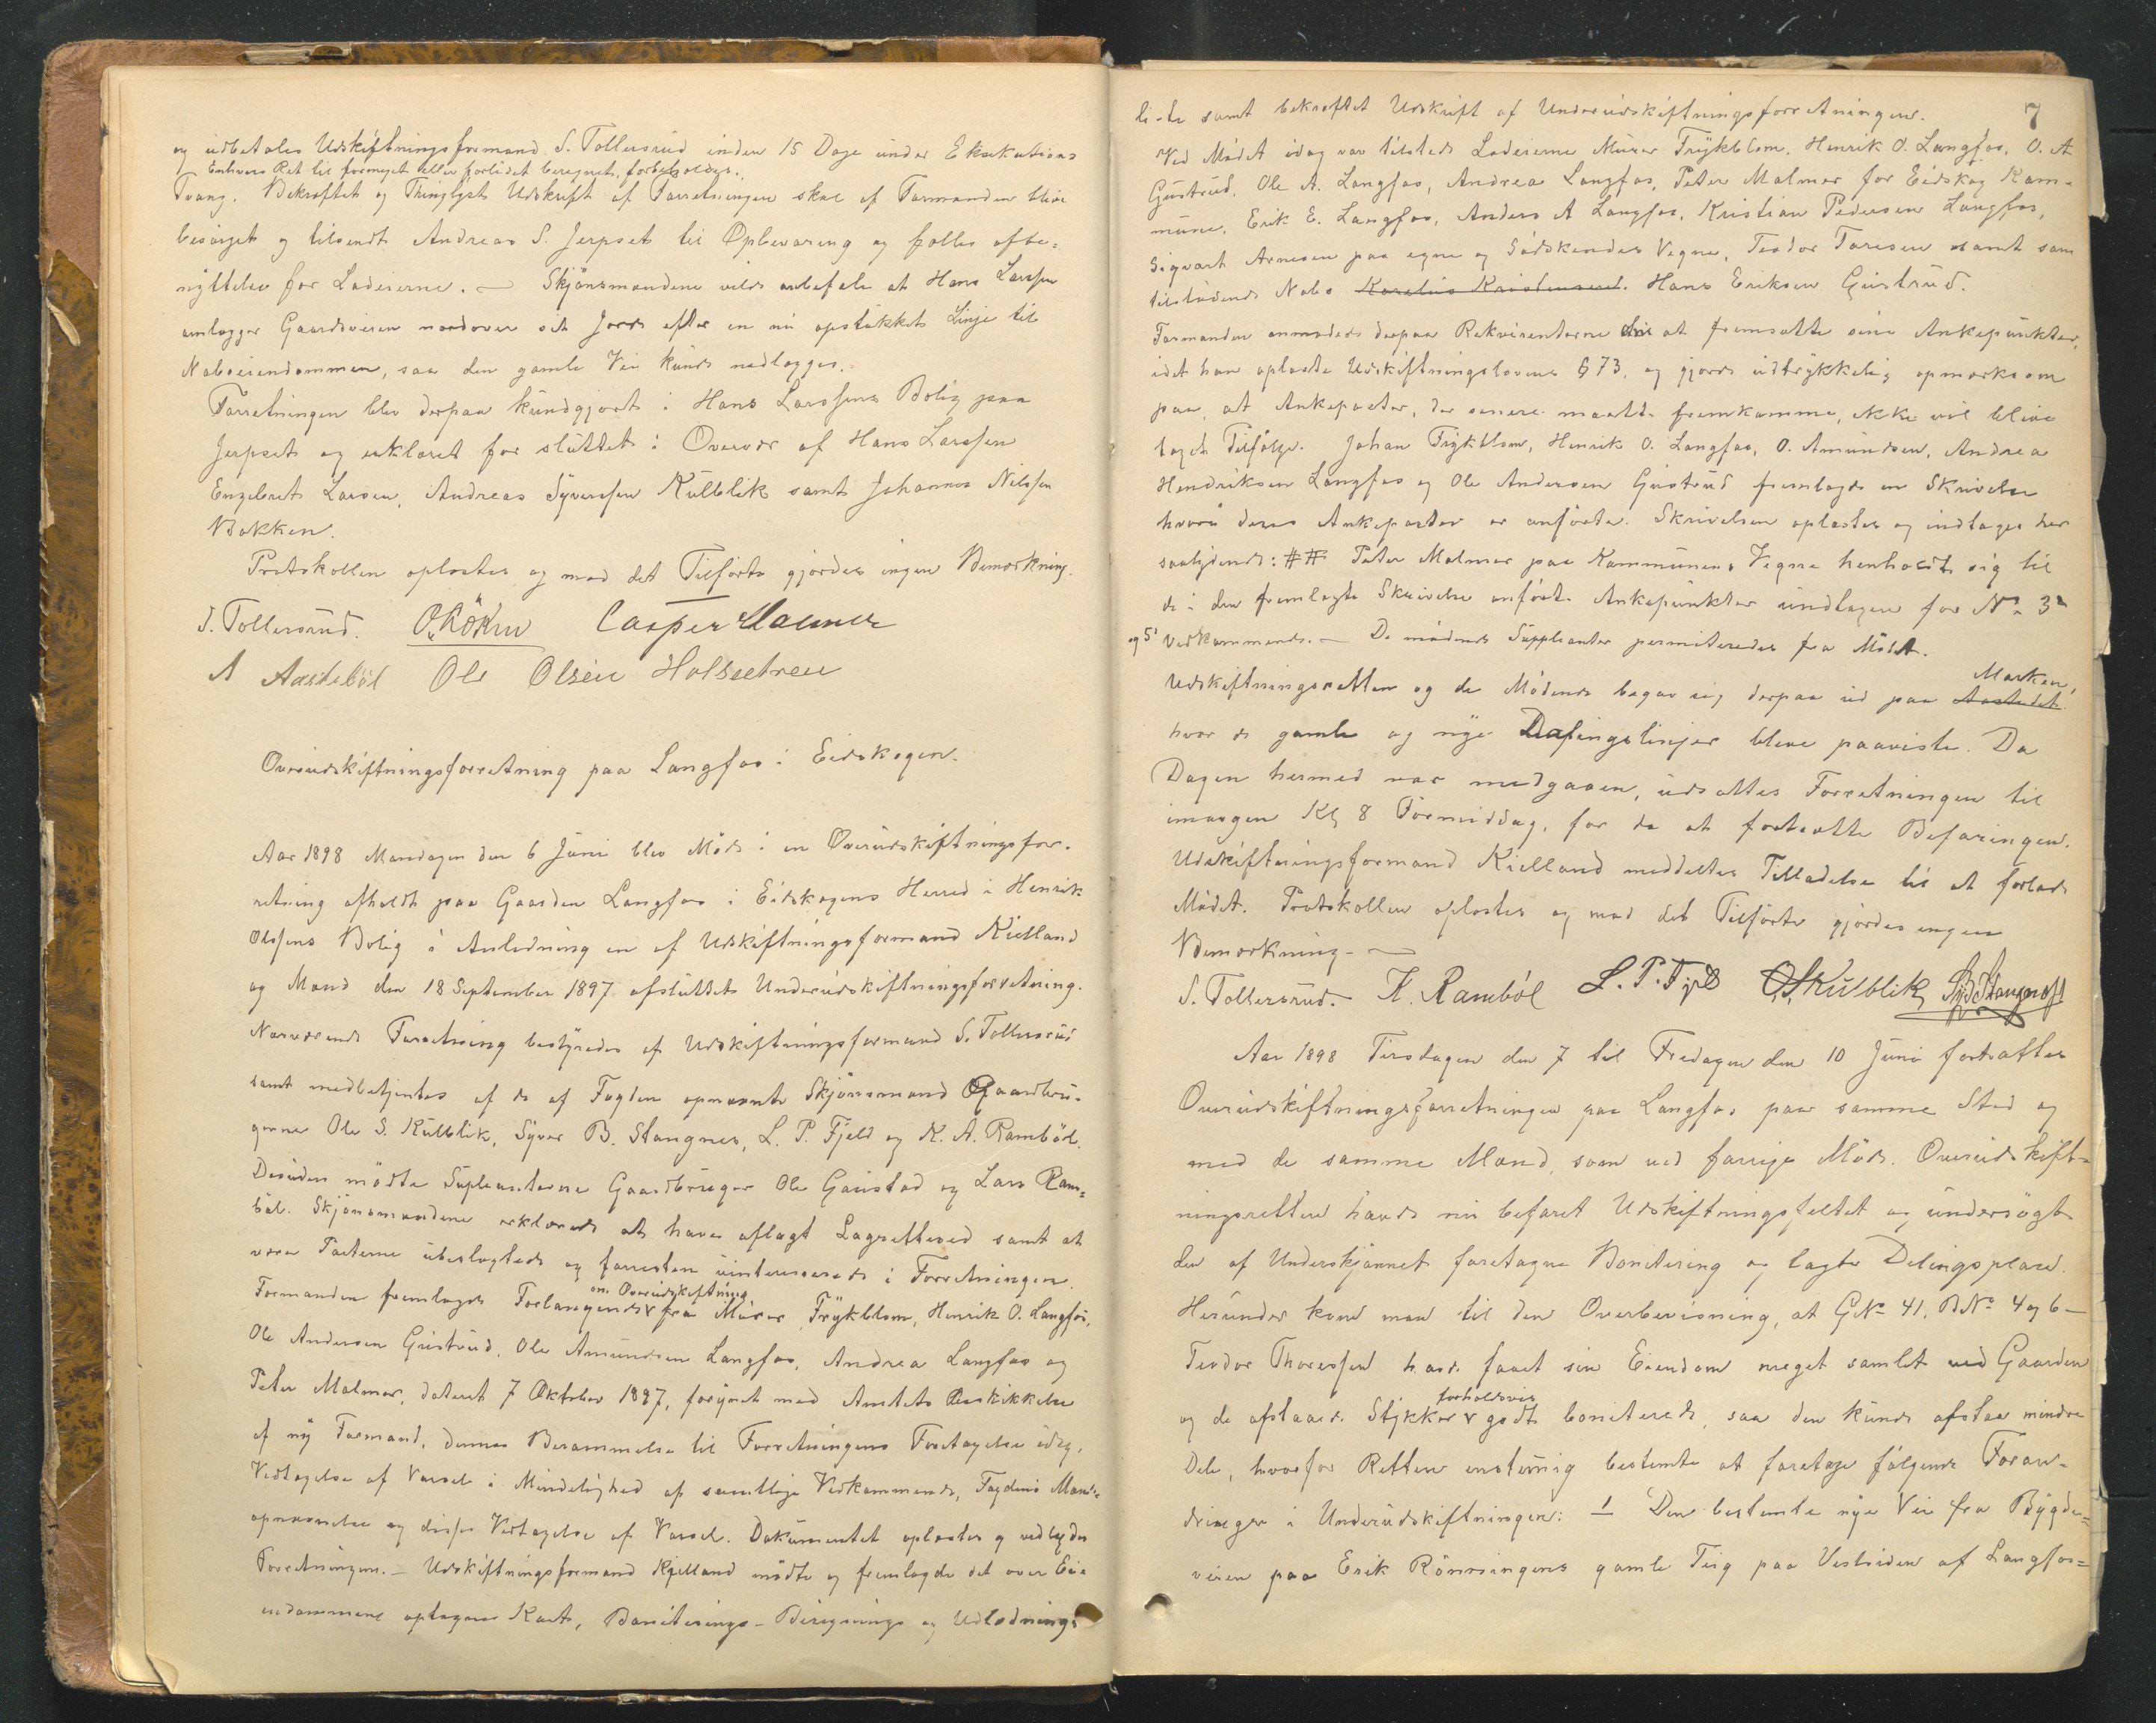 og udbetales Udskiftningsformand S. Tollersrud inden 15 Dage under Eksekutions
Enhvers Ret til formeget eller forlidet beregnet, forbeholdes.
Tvang. Bekræftet og Thinglyst Udskrift af Forretningen skal af Formanden blive
besørget og tilsendt Andreas S. Jerpset til Opbevaring og fælles afbe-
nyttelse for Lodeierne. — Skjønsmændene vilde anbefale at Hans Larssen
omlægger Gaardsveien nordover sit Jorde efter en nu opstukket Linje til
Naboeiendommen, saa den gamle Vei kunde nedlægges.
Forretningen blev derpaa kundgjort i Hans Larssens Bolig paa
Jerpset og erklæret for sluttet i Overvær af Hans Larssen
Engebret Larsen, Andreas Syverssen Kulblik samt Johannes Nilssen
Bakken.
Protokollen oplæstes og mod det Tilførte gjordes ingen Bemærkning.
S. Tollersrud. O. Röken Casper Malmer
A Aastebøl Ole Olsen Holsætren
Overudskiftningsforretning paa Langfos i Eidskogen.
Aar 1898 Mandagen den 6 Juni blev Møde i en Overudskiftningsfor-
retning afholdt paa Gaarden Langfos i Eidskogens Herred i Henrik
Olssens Bolig i Anledning en af Udskiftningsformand Kielland
og Mænd den 18 September 1897 afsluttet Underudskiftningsforretning.
Nærværende Forretning bestyredes af Udskiftningsformand S. Tollersrud
samt medbetjentes af de af Fogden opnævnte Skjønsmænd Gaardbru-
gerne Ole S. Kulblik, Syver B. Stangnes, L. P. Fjeld og K. A. Ramböl.
Desuden mødte Supleanterne Gaardbruger Ole Gaustad og Lars Ram-
böl. Skjønsmændene erklærede at have aflagt Lagretteed samt at
være Parterne ubeslægtede og forresten uinteresserede i Forretningen.
om Overudskiftning
Formanden fremlagde Forlangende v fra Murer Frykblom, Henrik O. Langfos,
Ole Andersen Gustrud, Ole Amundsen Langfos, Andrea Langfos og
Peter Malmer, dateret 7 Oktober 1897, forsynet med Amtets Beskikkelse
af ny Formand, dennes Berammelse til Forretningens Foretagelse idag,
Vedtagelse af Varsel i Mindelighed af samtlige Vedkommende, Fogdens Mands-
opnævnelse og disses Vedtagelse af Varsel. Dokumentet oplæstes og vedlagdes
Forretningen. — Udskiftningsformand Kjelland mødte og fremlagde det over Ei-
endommene optagne Kart, Boniterings- Beregnings og Udlodnings
7
li-te samt bekræftet Udskrift af Underudskiftningsforretningen.
Ved Mødet idag var tilstede Lodeierne Murer Frykblom, Henrik O. Langfos, O. A
Gustrud, Ole A. Langfos, Andrea Langfos, Peter Malmer for Eidskog Kom-
mune, Erik E. Langfos, Anders A Langfos, Kristian Pedersen Langfos,
Sigvart Arnesen paa egne og Södskendes Vegne, Teodor Toresen samt som
tilstødende Nabo Karelius Kristensen. Hans Eriksen Gustrud.
Formanden anmodede derpaa Rekvirenterne om at fremsætte sine Ankepunkter,
idet han oplæste Udskiftningslovens § 73, og gjorde udtrykkelig opmærksom
paa, at Ankeposter, der senere maatte fremkomme, ikke vil blive
taget Tilfølge. Johan Frykblom, Henrik O. Langfos, O. Amundsen, Andrea
Hendriksen Langfos og Ole Andersen Gustrud fremlagde en Skrivelse
hvori deres Ankeposter er anførte. Skrivelsen oplæstes og indtages her
saalydende: ## Peter Malmer paa Kommunens Vegne henholdt sig til
de i den fremlagte Skrivelse anførte Ankepunkter undtagen for No 3
og 5 Vedkommende. — De mødende Suppleanter permiteredes fra Mødet.
Marken,
Udskiftningsretten og de Mødende begav sig derpaa ud paa Aastedet
hvor de gamle og nye Delingslinjer bleve paaviste. Da
Dagen hermed var medgaaen, udsattes Forretningen til
imorgen Kl 8 Formiddag, for da at fortsætte Befaringen.
Udskiftningsformand Kielland meddeltes Tilladelse til at forlade
Mødet. Protokollen oplæstes og mod det Tilførte gjordes ingen
Bemærkning. —
S. Tollersrud. K. Ramböl L. P. Fjeld O. S. Kulblik Sy. B. Stangnes
Aar 1898 Tirsdagen den 7 til Fredagen den 10 Juni fortsattes
Overudskiftningsforretningen paa Langfos paa samme Sted og
med de samme Mænd, som ved forrige Møde. Overudskift-
ningsretten havde nu befaret Udskiftningsfeltet og undersøgt
den af Underskjønnet foretagne Bonitering og lagte Delingsplan.
Herunder kom man til den Overbevisning, at GNo 41, BNo 4 og 6 —
Teodor Thoressen havde faaet sin Eiendom meget samlet ved Gaarden
forholdsvis
og de afstaaede Stykker v godt boniterede, saa den kunde afstaa mindre
Dele, hvorfor Retten enstemig bestemte at foretage følgende Foran-
dringer i Underudskiftningen: 1 Den bestemte nye Vei fra Bygde-
veien paa Erik Rönningens gamle Teig paa Vestsiden af Langfos-